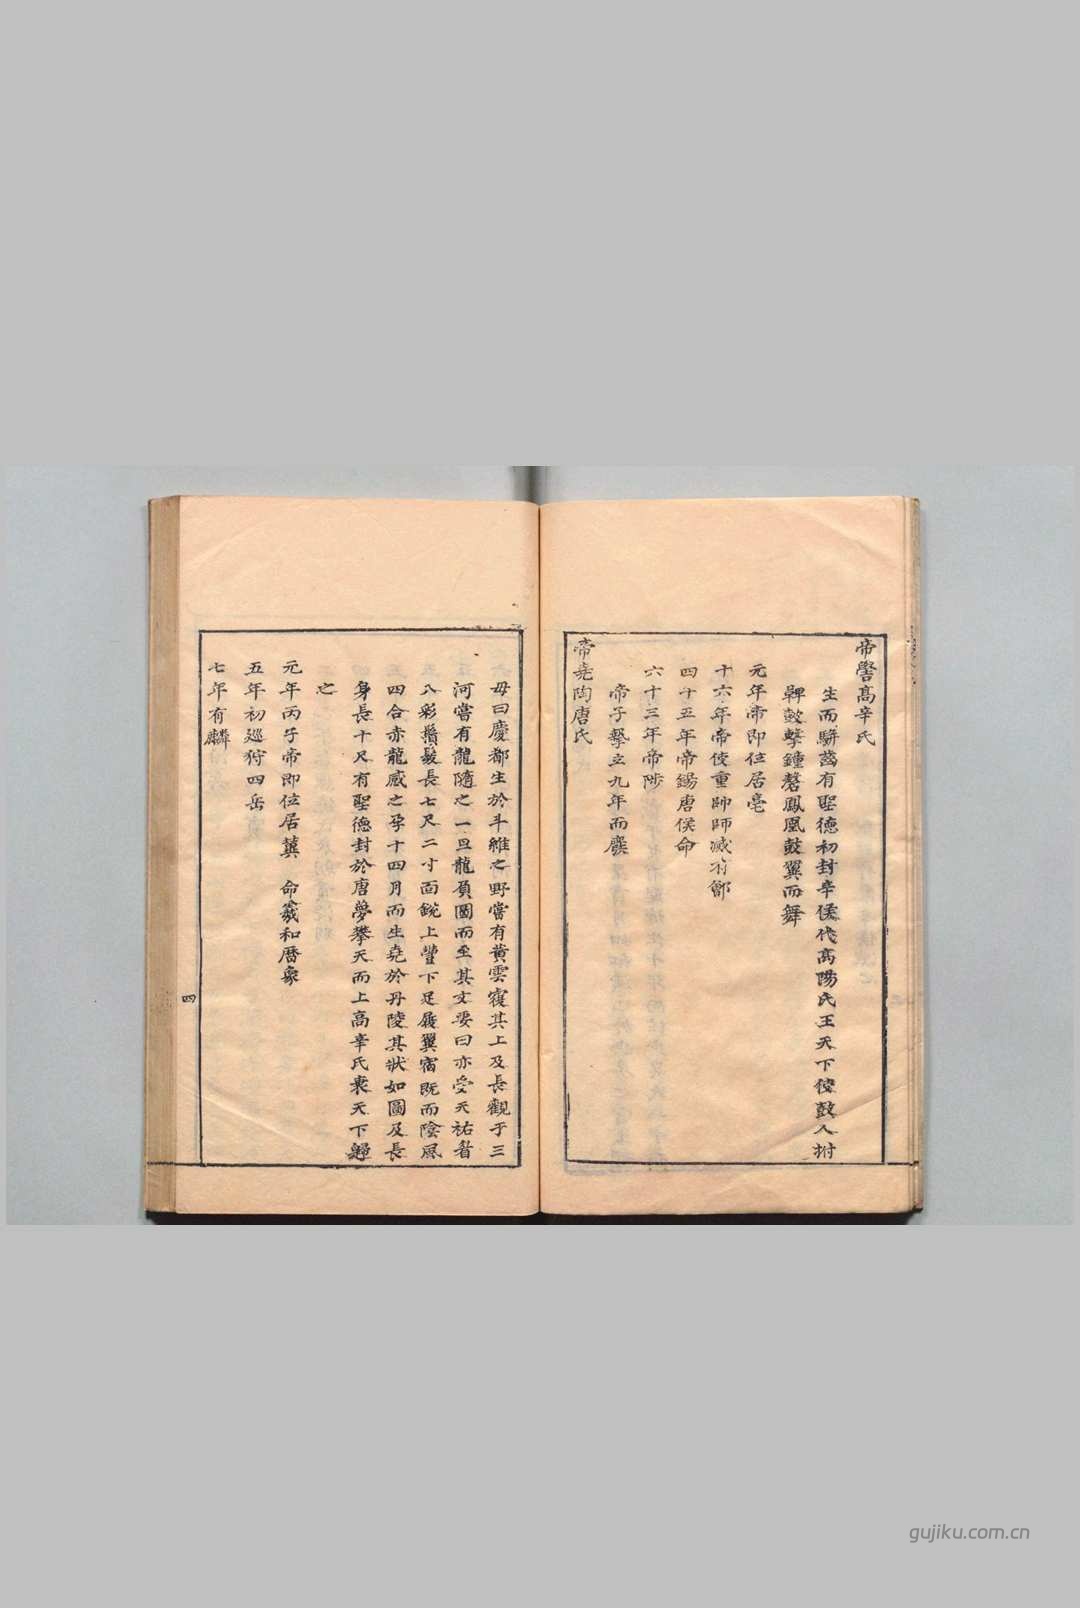 帝嚳髙辛氏
生而駢齒有聖德初封辛侯代髙陽氏王天下使鼓人拊
鞞鼓擊鐘磬鳳凰鼓翼而舞
元年帝即位居亳
十六年帝使重帥師滅有鄶
四十五年帝錫唐侯命
六十三年帝陟
帝子摯立九年而廢
帝堯陶唐氏
母曰慶都生於斗維之野嘗有黄雲覆其上及長觀于三
河嘗有龍隨之一旦龍負圖而至其文要曰亦受天祐眉
八彩鬚髮長七尺二寸面銳上豐下足履翼宿既而陰風
四合赤龍感之孕十四月而生堯於丹陵其狀如圖及長
身長十尺有聖德封於唐夢攀天而上高辛氏衰天下歸
之
元年丙子帝即位居冀 命羲和曆象
五年初巡狩四岳
七年有麟
四
gujiku.com.cn